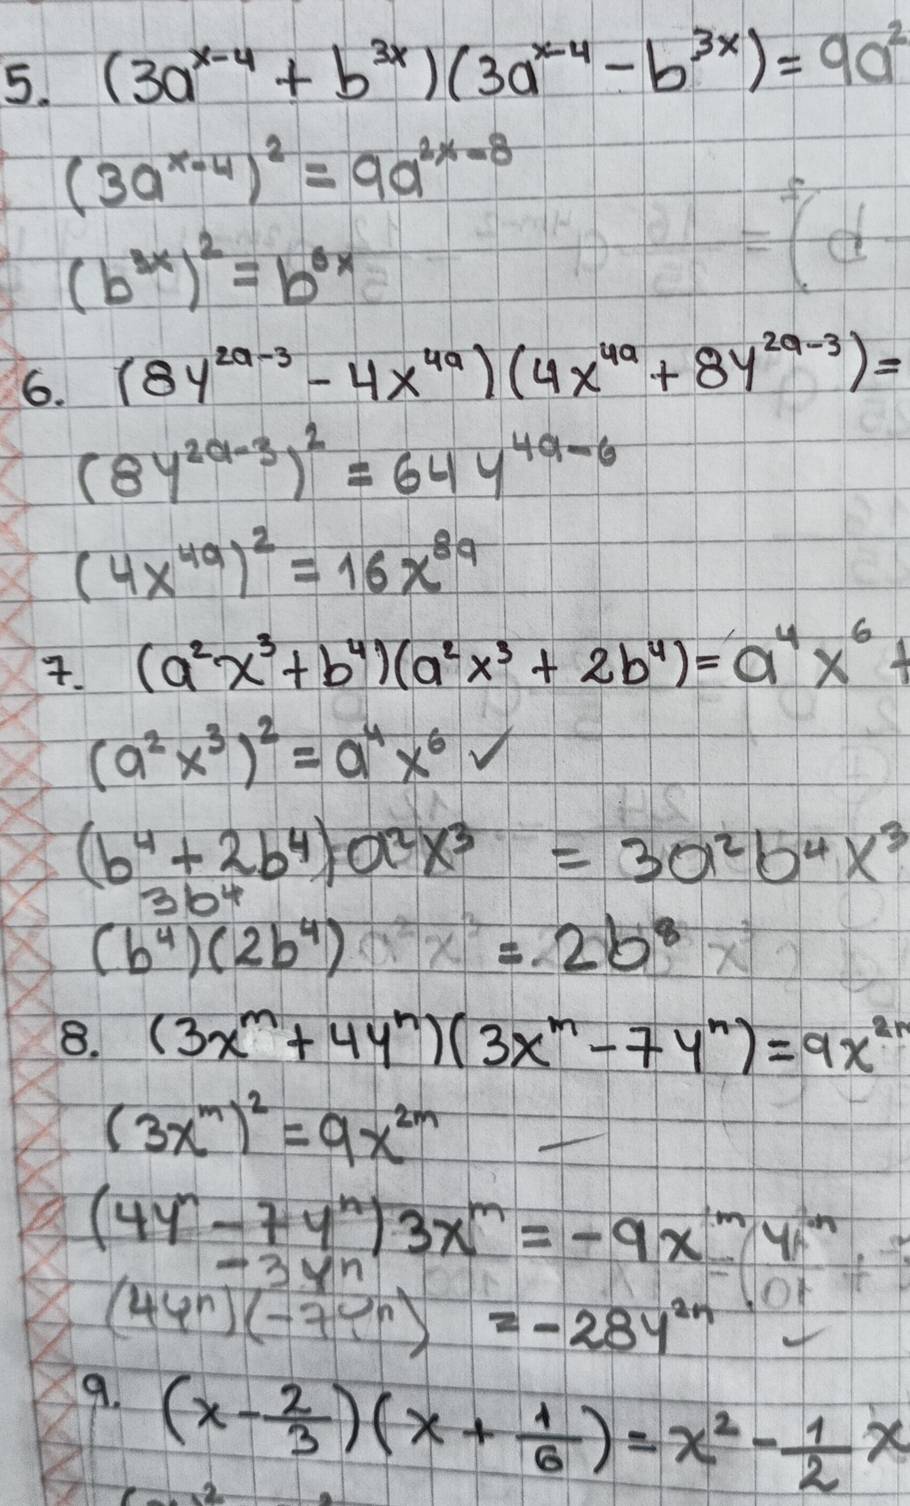 5. (3a^{x-4} + b^{3x})(3a^{x-4} - b^{3x}) = 9a^2
(3a^{x-4})^2 = 9a^{2x-8}
(b^{3x})^2 = b^{6x}
6. (8y^{2a-3} - 4x^{4a})(4x^{4a} + 8y^{2a-3}) =
(8y^{2a-3})^2 = 64y^{4a-6}
(4x^{4a})^2 = 16x^{8a}
7. (a^2x^3 + b^4)(a^2x^3 + 2b^4) = a^4x^6 +
(a^2x^3)^2 = a^4x^6 ✓
(b^4 + 2b^4)a^2x^3 = 3a^2b^4x^3
3b^4
(b^4)(2b^4) = 2b^8
8. (3x^m + 4y^n)(3x^m - 7y^n) = 9x^{2m}
(3x^m)^2 = 9x^{2m}
(4y^n - 7y^n)3x^m = -9x^my^n
-3y^n
(4y^n)(-7y^n) = -28y^{2n} ✓
9. (x - 2/3)(x + 1/6) = x^2 - 1/2 x